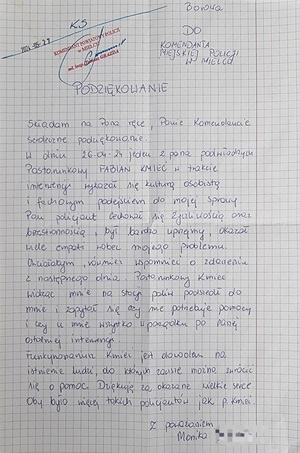 KS
Borowa
KOMENDANT POWIATOWY POLICJI
W MIELCU
DO
KOMENDANTA
MIEJSKIEJ POLICJI
W MIELCU
PODZIĘKOWANIE
Składam na Pana ręce, Panie Komendancie
serdeczne podziękowanie.
W dniu 26-04-24 jeden z pana podwładnych
Posterunkowy FABIAN KMIEĆ w trakcie
interwencji wykazał się kulturą osobistą
i fachowym podejściem do mojej sprawy
Pan policjant cechował się życzliwością oraz
bezstronnością, był bardzo uprzejmy, okazał
wiele empatii wobec mojego problemu.
Chciałabym również wspomnieć o zdarzeniu
z następnego dnia. Posterunkowy Kmieć
widząc mnie na stacji paliw podszedł do
mnie i zapytał się czy nie potrzebuję pomocy
i czy u mnie wszystko w porządku po
ostatniej interwencji.
Funkcjonariusz Kmieć jest dowodem na
istnienie ludzi, do których zawsze można zwrócić
się o pomoc. Dziękuję za okazane wielkie serce
Oby było więcej takich policjantów jak p. Kmieć.
Z poważaniem
Monika